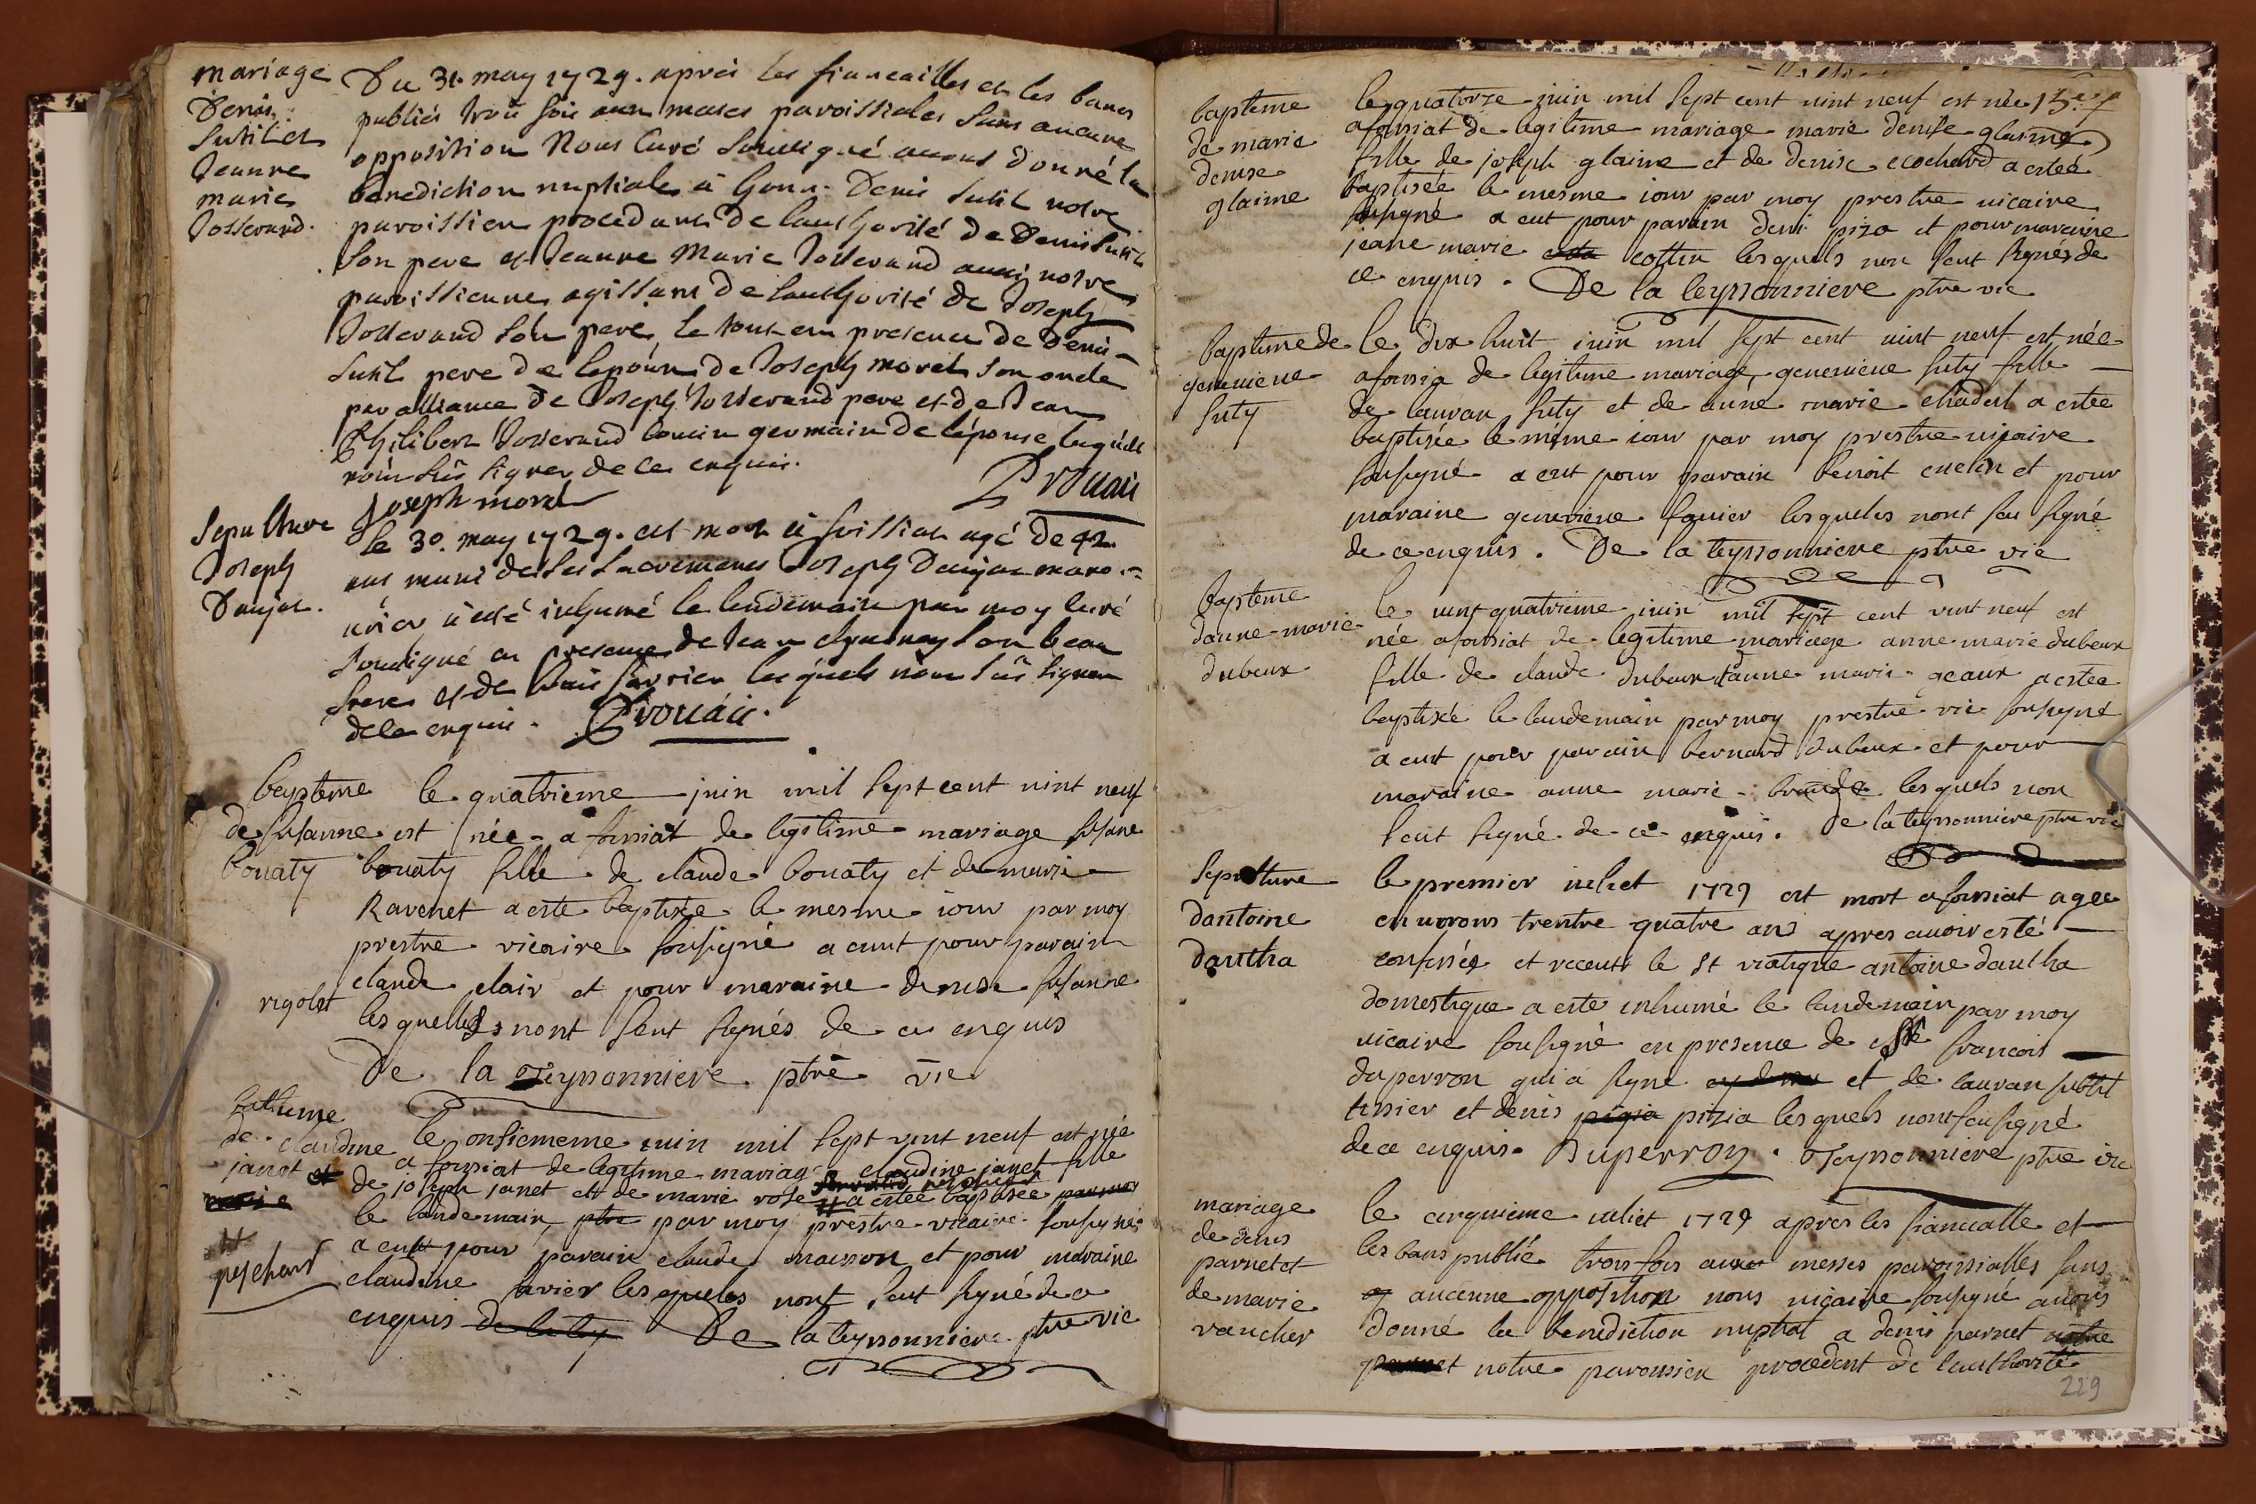 mariage
Denis
Sutil et
Jeanne
marie
Josserand.
Du 31. may 1729. après les fiancailles et les bancs
publiés trois fois aux messes paroissiales sans aucune
opposition Nous Curé soussigné avons donné la
benediction nuptiale à honn. Denis Sutil nostre
paroissien procedant de lauthorité de Denis Sutil
son pere et Jeanne Marie Josserand aussi nostre
paroissienne agissant de lauthorité de Joseph
Josserand son pere, le tout en presence de Denis
Sutil pere de lepoux de Joseph morel son oncle
par alliance de Joseph Josserand pere et de Jean
Philibert Josserand cousin germain de lépouse lesquels
nont sçû signer de ce enquis.
Joseph morel
Drouair
Sepulture
Joseph
Daujat.
Le 30. may 1729. est mort à foissiat agé de 42
ans muni de ses sacremens Joseph Daujat mano
uvrier à esté inhumé le lendemain par moy curé
soussigné en presence de Jean son beau
frere et de lesquels nont sçû signer
de ce enquis. Drouair.
bapteme
de susanne
bonaty
le quatrieme juin mil sept cent vint neuf
est née a foissiat de legitime mariage susane
bonaty fille de claude bonaty et de marie
Ravenet a esté baptisée le mesme iour par moy
prestre vicaire sousigné a eut pour parain
claude clair et pour maraine denise susanne
rigolet
lesquelles nont seut signés de ce enquis
De la teyssonniere ptre vic
batteme
de claudine
janet et
marie
#
peschard
le onsiememe iuin mil sept vint neuf est née
a foissiat de legitime mariage claudine janet fille
de joseph janet et de marie rose # a estée baptisée par moy
le landemain, ptre par moy prestre vicaire sousigné
a eut pour parain claude maisson et pour maraine
claudine favier lesqueles nont seut signé de ce
enquis de la tey De la teyssonniere ptre vic
bapteme
de marie
denise
glaine
le quatorze juin mil sept cent vint neuf est née
a foissiat de legitime mariage marie denise glaine
fille de joseph glaine et de denise ecochard a estée
baptisée le mesme iour par moy prestre vicaire
sousigné a eut pour parain deni piza et pour maraine
jeane marie cottin lesquels non seut signés de
ce enquis. De la teyssonniere ptre vic
bapteme de
genevieve
suty
le dix huit iuin mil sept cent vint neuf est née
a foissia de legitime mariage, genevieve suty fille
de lauran suty et de anne marie chadel a estée
baptisée le même iour par moy prestre vicaire
sousigné a eut pour parain benoit et pour
maraine genevieve favier lesqueles nont seu signé
de ce enquis. De la teyssonniere ptre vic
bapteme
danne marie
dubeux
le vint quatrieme juin mil sept cent vint neuf est
née a foissiat de legitime mariage anne marie dubeux
fille de claude dubeux et danne marie geaux a estée
baptisée le landemain par moy prestre vic sousigné
a eut pour parain bernard dubeux et pour
maraine anne marie lesquels non
seut signé de ce enquis. De la teyssonniere ptre vic
sepulture
dantoine
dautha
le premier iuliet 1729 est mort a foissiat agée
environs trentre quatre ans apres avoir esté
confessés et receut le st viatique antoine dautha
domestique a esté inhumé le landemain par moy
vicaire sousigné en presence de francois
duperron qui a signé et de lauran subtil
tissier et denis pizia pizia lesquels nont seu signé
de ce enquis. Duperron. Teyssonniere ptre vic
mariage
de denis
parnet et
de marie
vaucher
le cinquieme iuliet 1729 apres les fiancaille et
les bans publié trois fois aux messes paroissialles sans
aucunne opposition nous vicaire sousigné avons
donné la benediction nuptial a denis parnet notre
parnet notre paroissien procedent de lauthorité
229